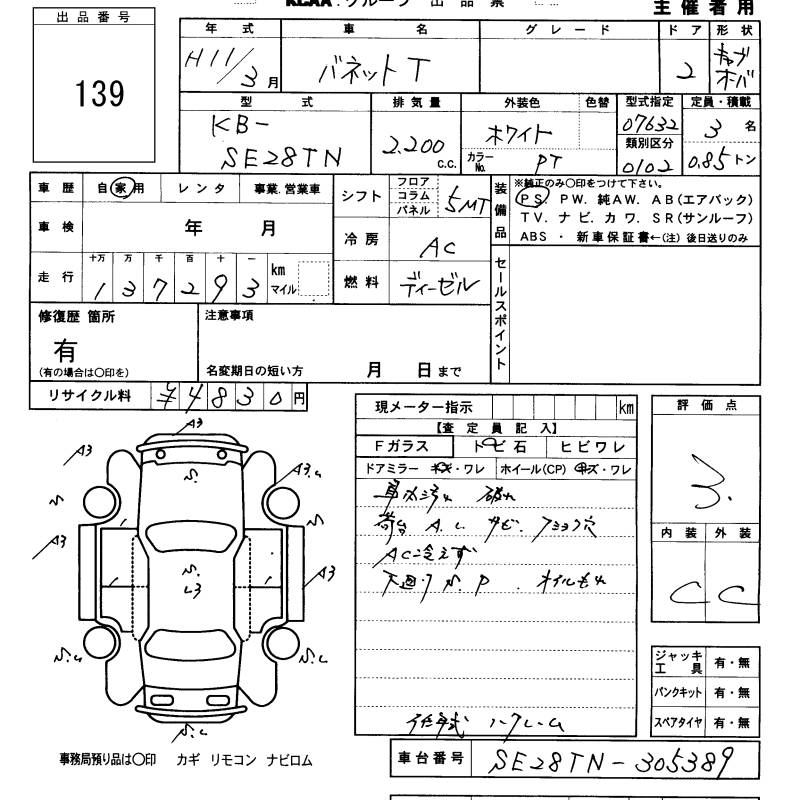 KCAA.グループ 出品票
主催者用
出品番号
139
年式 車名 グレード ドア 形状
H11/3月 バネットT 2 キャブオーバ
型式 排気量 外装色 色替 型式指定 定員・積載
KB-
SE28TN 2.200 c.c. ホワイト 07632 3名
類別区分
カラーNo. PT 0102 0.85トン
車歴 自家用 レンタ 事業.営業車
車検 年 月
走行 十万 万 千 百 十 一
137293 km マイル
シフト フロア コラム パネル 5MT
冷房 AC
燃料 ディーゼル
装備品
※純正のみ〇印をつけて下さい。
PS PW. 純AW. AB(エアバック)
TV. ナビ. カワ. SR(サンルーフ)
ABS ・ 新車保証書←(注) 後日送りのみ
セールスポイント
修復歴 箇所
有
(有の場合は〇印を)
注意事項
名変期日の短い方 月 日まで
リサイクル料 ¥4830円
現メーター指示 km
【査定員記入】
Fガラス トビ石 ヒビワレ
ドアミラー キズ・ワレ ホイール(CP) キズ・ワレ
破れ
荷台 A.L サビ. 穴
AC冷えず
下廻り S.P . オイルもれ
評価点
3.
内装 外装
C C
ジャッキ工具 有・無
パンクキット 有・無
スペアタイヤ 有・無
A3
A3
A3.L
S.
A3
S.
L3
A3
S.L
S.L
S.L
事務局預り品は〇印 カギ リモコン ナビロム
車台番号 SE28TN-305389